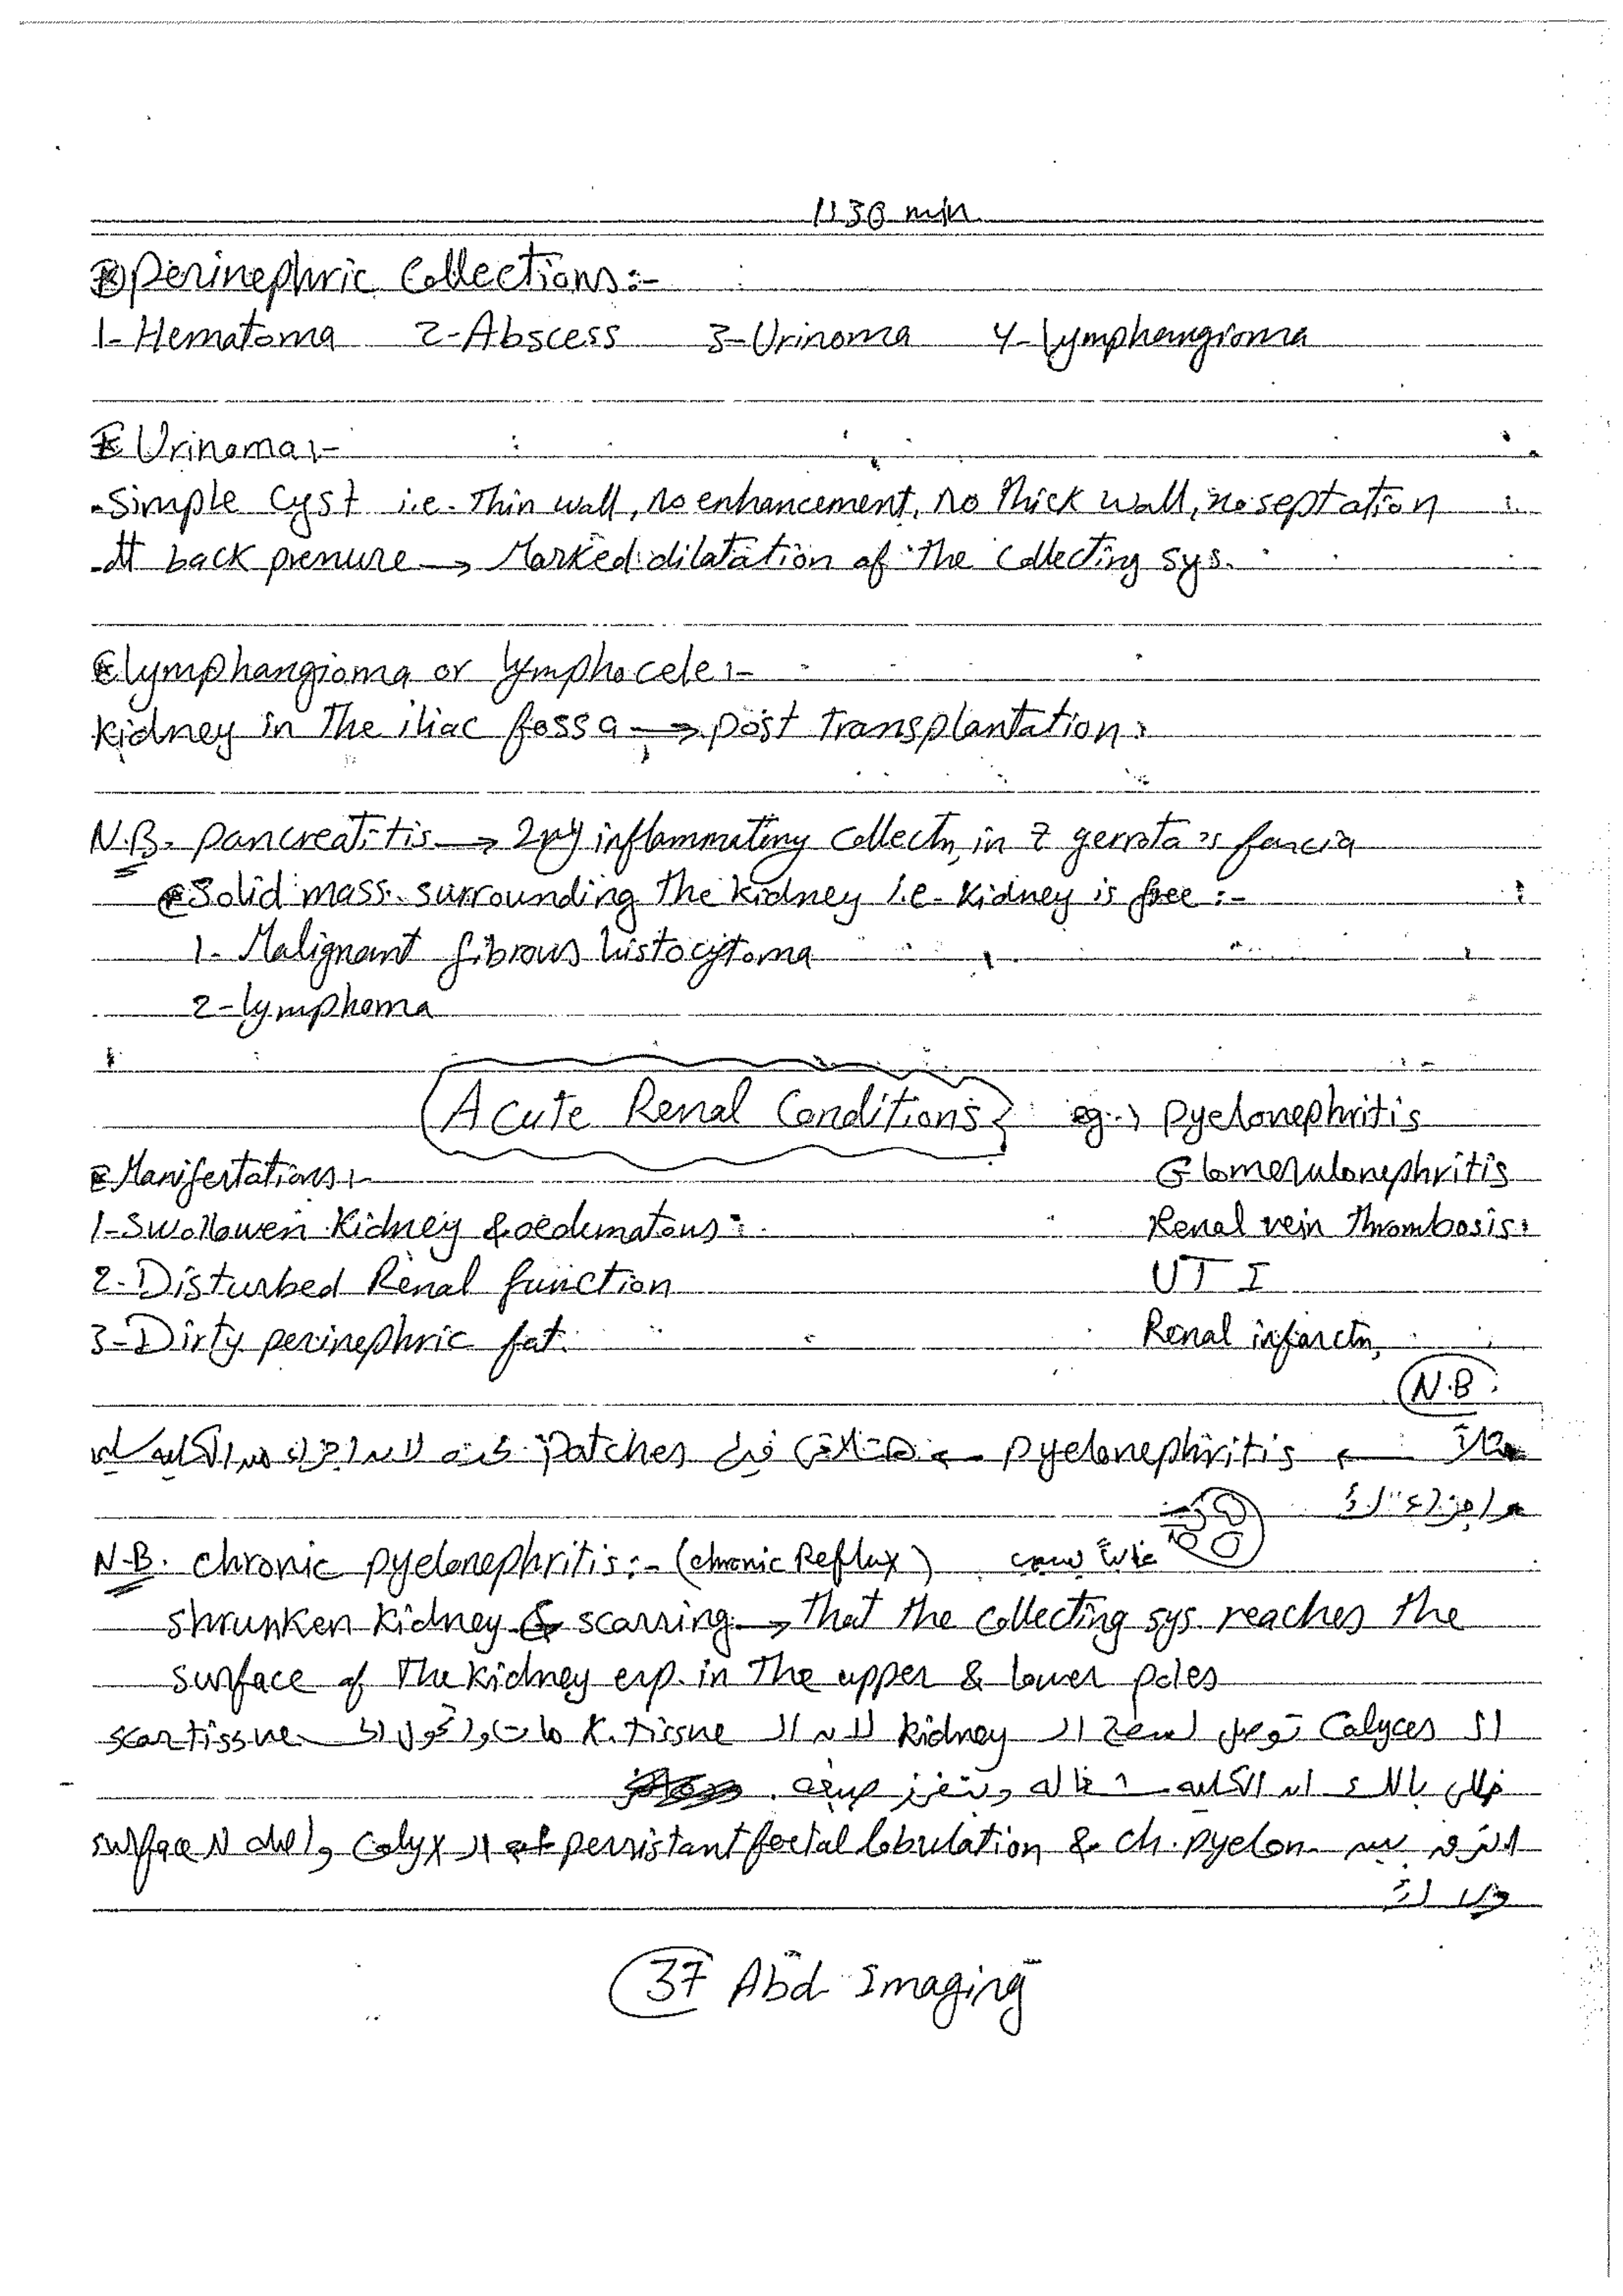 1:30 min
Perinephric Collections:-
1- Hematoma 2- Abscess 3- Urinoma 4- lymphangioma
Urinoma:-
- Simple Cyst i.e. Thin wall, no enhancement, no thick wall, no septation
- back pressure → Marked dilatation of the collecting sys.
lymphangioma or lymphocele:-
Kidney in the iliac fossa → post transplantation.
N.B. pancreatitis → 2ry inflammatiny collectn, in gerrota's fascia
Solid mass surrounding the kidney i.e. kidney is free :-
1- Malignant fibrous histocytoma
2- lymphoma
Acute Renal Conditions eg. → pyelonephritis
Manifestations:- Glomerulonephritis
1- Swollowen Kidney & oedematous Renal vein thrombosis
2- Disturbed Renal function UTI
3- Dirty perinephric fat. Renal infarctn,
N.B.
pyelonephritis ← هتلاقى فيه patches كده لانه اجزاء من الكلية
واجزاء لأ
N.B. chronic pyelonephritis:- (chronic Reflux)
shrunken kidney & scarring → that the collecting sys. reaches the
surface of the kidney esp. in the upper & lower poles
الـ Calyces توصل لسطح الـ kidney لانه الـ K. tissue مات واتحول الى scar tissue
خلي بالك ان الكلية شغاله وبتفرز صبغه.
الفرق بين ch. pyelon. & persistant foetal lobulation الـ Calyx واصله لـ surface
ولا لأ
37 Abd Imaging